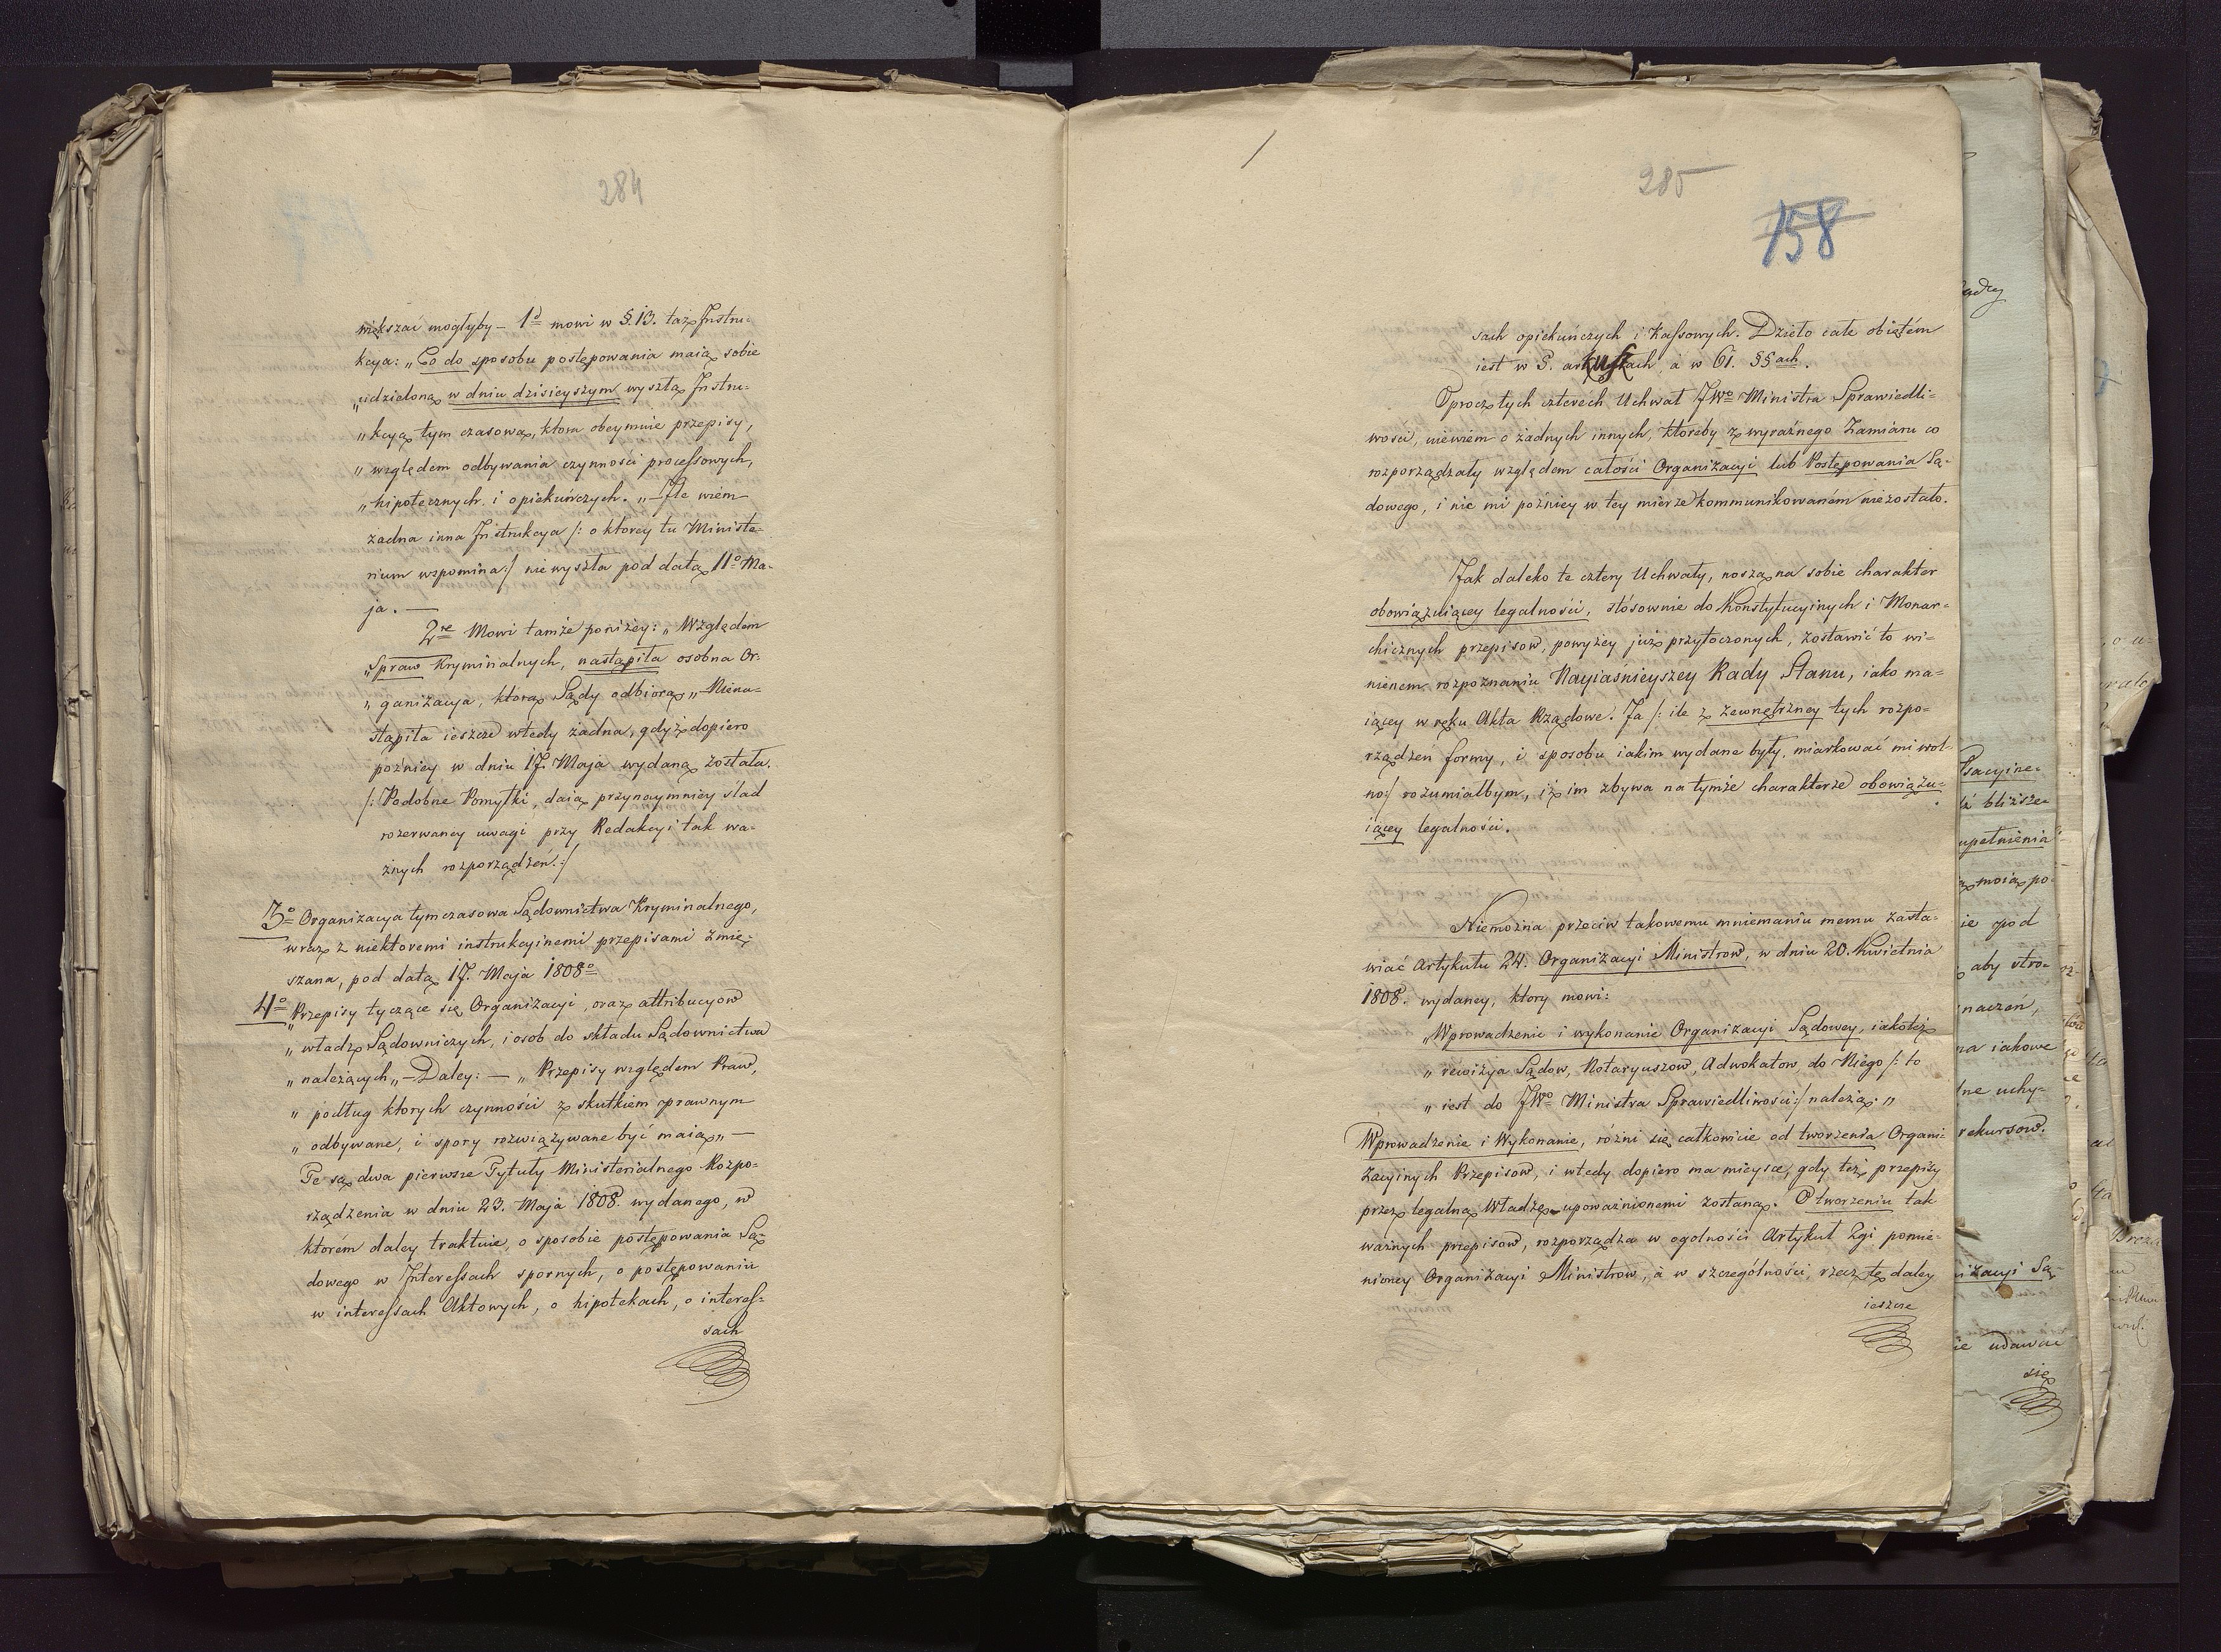 284
większać mogłyby – 1º mowi w §. 13. taż Instru-
kcya: „Co do sposobu postępowania maią sobie
„udzieloną w dniu dzisieyszym wyszłą Instru-
„kcyą tymczasową, ktora obeymuie przepisy,
„względem odbywania czynności processowych,
„hipotecznych i opiekuńczych. „ – Ile wiem
żadna inna Instrukcya /: o ktorey tu Ministe-
rium wspomina :/ nie wyszła pod datą 11º Ma-
ja. —
2re Mowi tamże poniżey: „Względem
„Spraw Kryminalnych, nastąpiła osobna Or-
„ganizacya, ktorą Sądy odbiorą „ – Niena-
stąpiła ieszcze wtedy żadna, gdyż dopiero
pozniey w dniu 17. Maja wydaną została.
/: Podobne Pomyłki, daią przynaymniey ślad
rozerwaney uwagi przy Redakcyi tak wa-
żnych rozporządzeń. :/
3º Organizacya tymczasowa Sądownictwa Kryminalnego,
wraz z niektoremi instrukcyinemi przepisami zmię-
szana, pod datą 17. Maja 1808º
4º „Przepisy tyczące się Organizacyi, oraz attribucyow
„władz Sądowniczych, i osob do składu Sądownictwa
„należących „ – Daley: — „Przepisy względem Praw,
„podług ktorych czynności z skutkiem prawnym
„odbywane, i spory rozwiązywane być maią „ —
Te są dwa pierwsze Tytuły Ministerialnego Rozpo-
rządzenia w dniu 23. Maja 1808. wydanego, w
ktorém daley traktuie, o sposobie postępowania Są-
dowego w Interessach spornych, o postępowaniu
w interessach Aktowych, o hipotekach, o interess-
sach
285
158
sach opiekuńczych i Kassowych. Dzieło całe obiętém
iest w §. arkuszach, a w 61. §§ach.
Oprocz tych czterech Uchwał JWº Ministra Sprawiedli-
wości, niewiem o żadnych innych, ktoreby z wyraźnego Zamiaru co
rozporządzały względem całości Organizacyi lub Postępowania Są-
dowego, i nic mi poźniey w tey mierze kommunikowanem niezostało.
Jak daleko te cztery Uchwały, noszą na sobie charakter
obowiązuiącey legalności, stósownie do Konstytucyinych i Monar-
chicznych przepisow, powyżey już przytoczonych, zostawić to wi-
nienem rozpoznaniu Nayiaśnieyszey Rady Stanu, iako ma-
iącey w ręku Akta Rządowe. Ja /: ile z zewnętrzney tych rozpo-
rządzeń formy, i sposobu iakim wydane były, miarkować mi wol-
no :/ rozumiałbym, iż im zbywa na tymże charakterze obowiązu-
iącey legalności.
Niemożna przeciw takowemu mniemaniu memu zasta-
wiać Artykułu 24. Organizacyi Ministrow, w dniu 20. Kwietnia
1808. wydaney, ktory mowi:
„Wprowadzenie i wykonanie Organizacyi Sądowey, iakoteż
„rewizya Sądow, Notaryuszow, Adwokatow, do Niego /: to
„iest do JWº Ministra Sprawiedliwości :/ należą. „
Wprowadzenie i Wykonanie, różni się całkowicie od tworzenia Organi-
zacyinych Przepisow, i wtedy dopiero ma mieysce, gdy też przepisy
przez legalną Władzę upoważnionemi zostaną. O tworzeniu tak
ważnych przepisow, rozporządza w ogolności Artykuł 2gi pomie-
nioney Organizacyi Ministrow, a w szczególności, rzecz tę daley
ieszcze
bliższe
upełnienia
ie pod
aby stro-
naczeń,
na iakowe
ne uchy-
rekursow.
nizacyi Są-
udawać
się